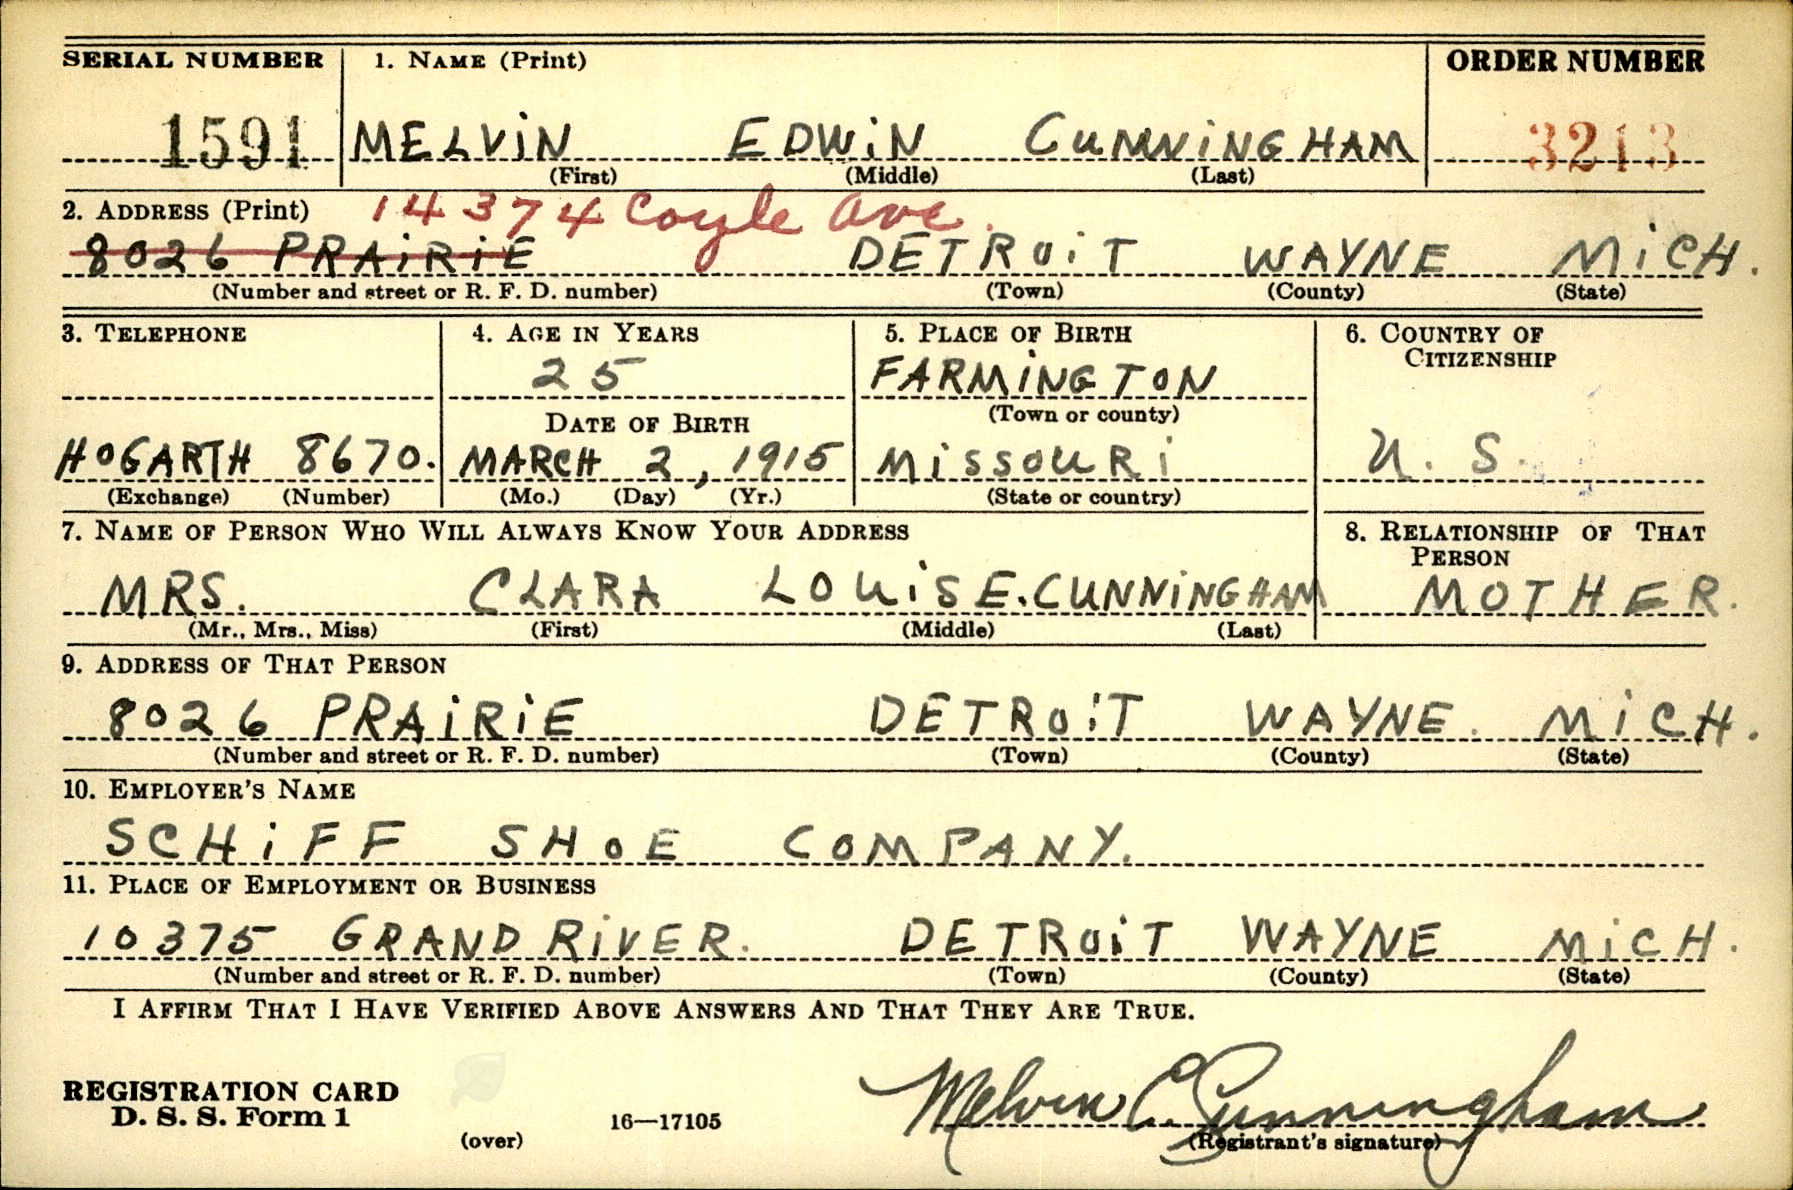 SERIAL NUMBER 1. NAME (Print) ORDER NUMBER
1591 MELVIN EDWIN CUNNINGHAM 3213
(First) (Middle) (Last)
2. ADDRESS (Print) 14374 Coyle Ave.
8026 PRAIRIE DETROIT WAYNE MICH.
(Number and street or R. F. D. number) (Town) (County) (State)
3. TELEPHONE 4. AGE IN YEARS 5. PLACE OF BIRTH 6. COUNTRY OF
CITIZENSHIP
25 FARMINGTON
DATE OF BIRTH (Town or county)
HOGARTH 8670. MARCH 2, 1915 MISSOURI U. S.
(Exchange) (Number) (Mo.) (Day) (Yr.) (State or country)
7. NAME OF PERSON WHO WILL ALWAYS KNOW YOUR ADDRESS 8. RELATIONSHIP OF THAT
PERSON
MRS. CLARA LOUISE. CUNNINGHAM MOTHER.
(Mr., Mrs., Miss) (First) (Middle) (Last)
9. ADDRESS OF THAT PERSON
8026 PRAIRIE DETROIT WAYNE. MICH.
(Number and street or R. F. D. number) (Town) (County) (State)
10. EMPLOYER'S NAME
SCHIFF SHOE COMPANY.
11. PLACE OF EMPLOYMENT OR BUSINESS
10375 GRAND RIVER. DETROIT WAYNE MICH.
(Number and street or R. F. D. number) (Town) (County) (State)
I AFFIRM THAT I HAVE VERIFIED ABOVE ANSWERS AND THAT THEY ARE TRUE.
REGISTRATION CARD Melvin E. Cunningham
D. S. S. Form 1 16—17105
(over) (Registrant's signature)